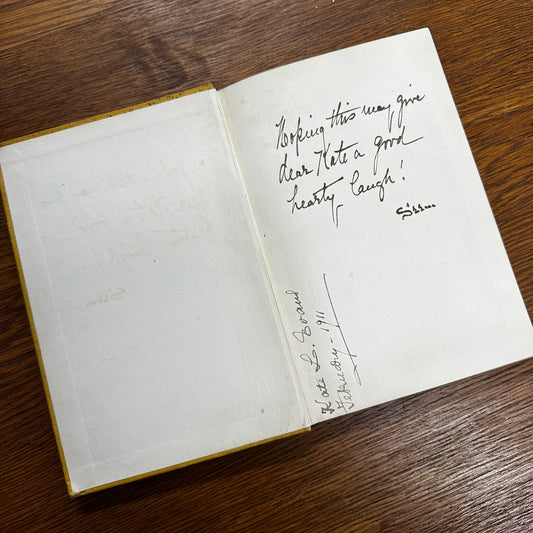 Hoping this may give
dear Kate a good
hearty laugh!
Kate L. Evans
February - 1911